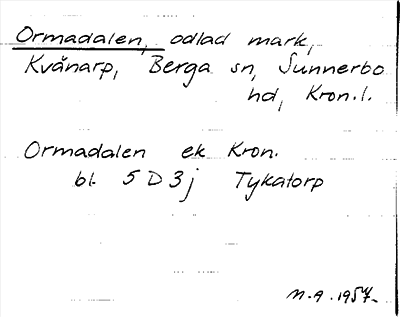 Ormadalen, odlad mark,
Kvänarp, Berga sn, Sunnerbo
hd, Kron.l.
Ormadalen ek Kron.
bl. 5 D 3 j Tykatorp
M.A. 1957.